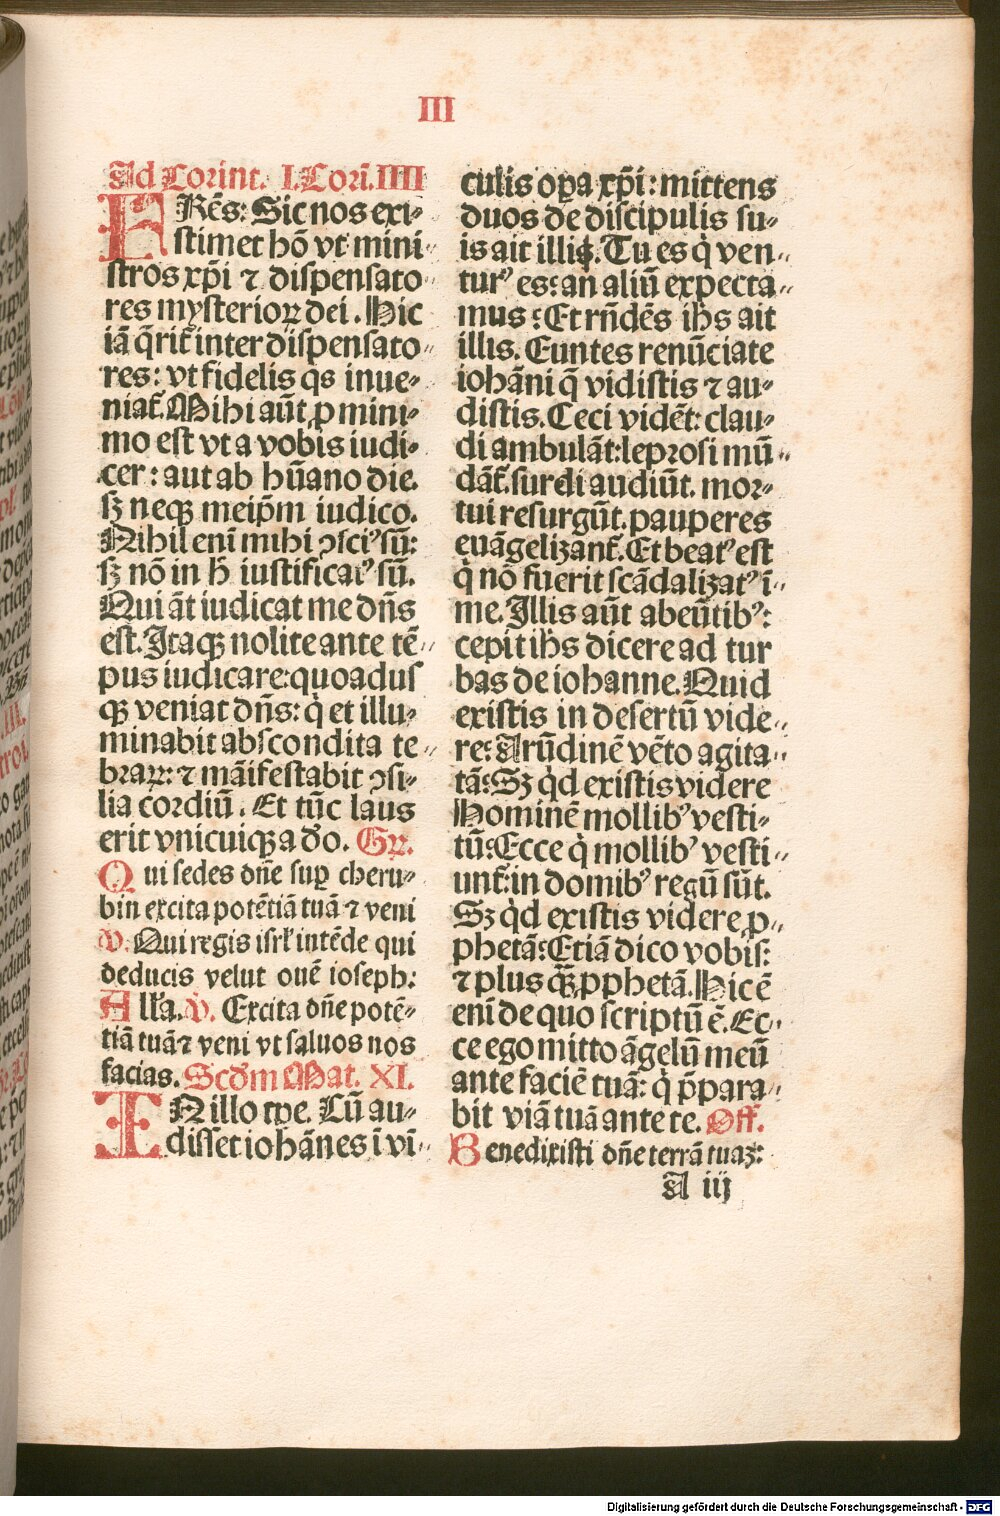 III
Ad Corint. I. Cori̅. IIII
FRẽs: Sic nos exi⸗
stimet hõ vt mini⸗
stros xp̄i ⁊ dispensato
res mysterioꝝ dei. Hic
iã q̃rit̃ inter dispensato⸗
res: vt fidelis q̃s inue⸗
niat̃. Mihi aũt ꝓ mini⸗
mo est vt a vobis iudi⸗
cer: aut ab hũano die.
sꝫ neqꝫ meip̄m iudico.
Nihil eni̅ mihi ↄsciꝰ sũ:
sꝫ nõ in h̄ iustificatꝰ sũ.
Qui ãt iudicat me dñs
est. Itaqꝫ nolite ante tẽ⸗
pus iudicare: quoadus
qꝫ veniat dñs: q̇ et illu⸗
minabit abscondita te⸗
braꝝ: ⁊ mãifestabit ↄsi⸗
lia cordiũ. Et tũc laus
erit vnicuiqꝫ a deo. Gr̄.
Qui sedes dñe suꝑ cheru⸗
bin excita potẽtiã tuã ⁊ veni
V̇. Qui regis isrl̃ intẽde qui
deducis velut ouẽ ioseph:
All̃a. V̇. Excita dñe potẽ⸗
tiã tuã ⁊ veni vt saluos nos
facias. Scd̃m Mat. XI.
IN illo tp̄e. Cũ au⸗
disset iohãnes i̅ vi⸗
culis oꝑa xp̄i: mittens
duos de discipulis su⸗
is ait illis. Tu es q̇ ven⸗
turꝰ es: an aliũ expecta⸗
mus: Et rñdẽs ihs ait
illis. Euntes renũciate
iohãni q̃ vidistis ⁊ au⸗
distis. Ceci vidẽt: clau⸗
di ambulãt: leprosi mũ⸗
dãt̃. surdi audiũt. mor⸗
tui resurgũt. pauperes
euãgelizant̃. Et beatꝰ est
q̇ nõ fuerit scãdalizatꝰ i̅
me. Illis aũt abeũtibꝰ:
cepit ihs dicere ad tur
bas de iohanne. Quid
existis in desertũ vide⸗
re: Arũdinẽ vẽto agita⸗
tã: Sꝫ q̇d existis videre
Hominẽ mollibꝰ vesti⸗
tũ: Ecce q̇ mollibꝰ vesti⸗
unt̃: in domibꝰ regũ sũt.
Sꝫ q̇d existis videre ꝓ⸗
phetã: Etiã dico vobis:
⁊ plus qꝫ̃ ꝓphetã. Hic ẽ
eni̅ de quo scriptũ ẽ. Ec⸗
ce ego mitto ãgelũ meũ
ante faciẽ tuã: q̇ p̄para⸗
bit viã tuã ante te. Off.
Benedixisti dñe terrã tuaꝫ:
A iij
Digitalisierung gefördert durch die Deutsche Forschungsgemeinschaft - DFG